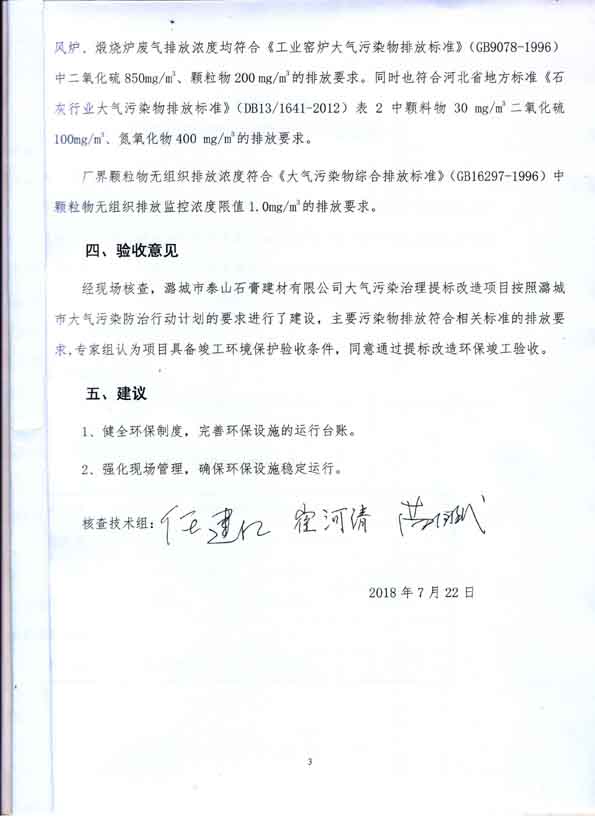 风炉、煅烧炉废气排放浓度均符合《工业窑炉大气污染物排放标准》（GB9078-1996）
中二氧化硫850mg/m³、颗粒物200 mg/m³的排放要求。同时也符合河北省地方标准《石
灰行业大气污染物排放标准》（DB13/1641-2012）表 2 中颗料物 30 mg/m³二氧化硫
100mg/m³、氮氧化物400 mg/m³的排放要求。
厂界颗粒物无组织排放浓度符合《大气污染物综合排放标准》（GB16297-1996）中
颗粒物无组织排放监控浓度限值 1.0mg/m³的排放要求。
四、验收意见
经现场核查，潞城市泰山石膏建材有限公司大气污染治理提标改造项目按照潞城
市大气污染防治行动计划的要求进行了建设，主要污染物排放符合相关标准的排放要
求,专家组认为项目具备竣工环境保护验收条件，同意通过提标改造环保竣工验收。
五、建议
1、健全环保制度，完善环保设施的运行台账。
2、强化现场管理，确保环保设施稳定运行。
核查技术组: 任建 河清
2018 年 7 月 22 日
3